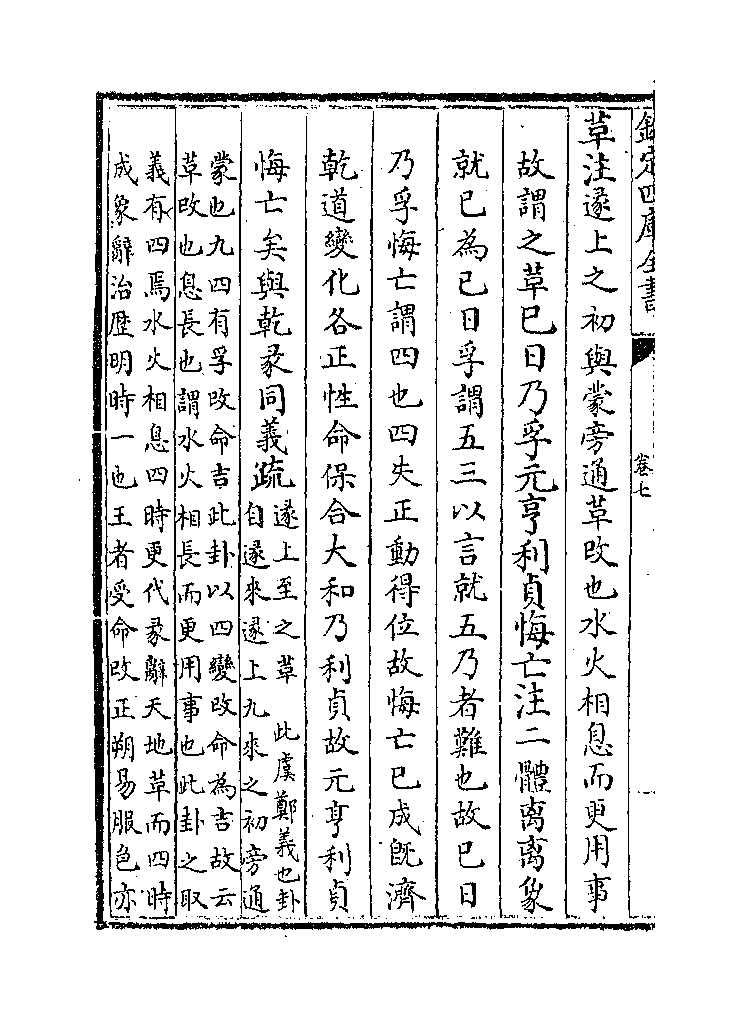 欽定四庫全書
卷七
革注遂上之初與蒙旁通革改也水火相息而更用事
故謂之革巳日乃孚元亨利貞悔亡注二體離離象
就巳為巳日孚謂五三以言就五乃者難也故巳日
乃孚悔亡謂四也四失正動得位故悔亡巳成旣濟
乾道變化各正性命保合大和乃利貞故元亨利貞
悔亡矣與乾彖同義疏
遂上至之革 此虞鄭義也卦
自遂來遂上九來之初旁通
蒙也九四有孚改命吉此卦以四變改命為吉故云
革改也息長也謂水火相長而更用事也此卦之取
義有四焉水火相息四時更代彖辭天地革而四時
成象辭治歴明時一也王者受命改正朔易服色亦